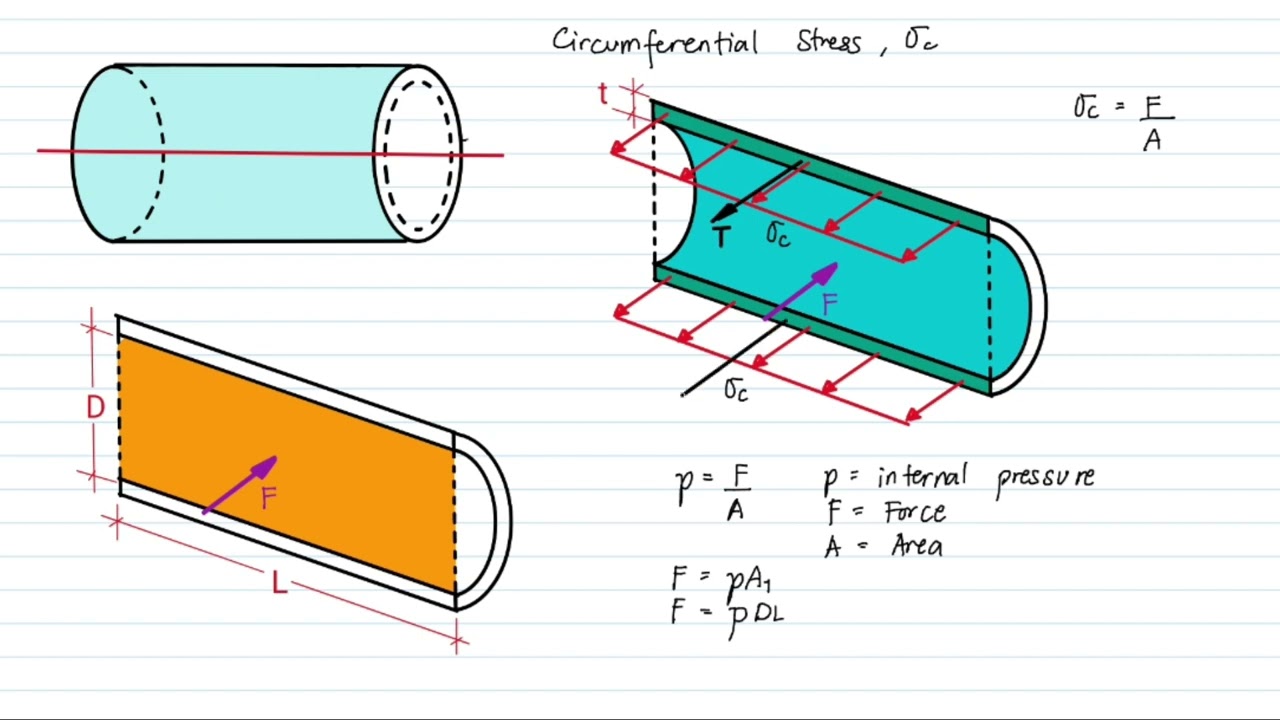 Circumferential Stress, σc
t
σc = F/A
T
σc
F
σc
D
F
L
p = F/A
p = internal pressure
F = Force
A = Area
F = pA₁
F = pDL